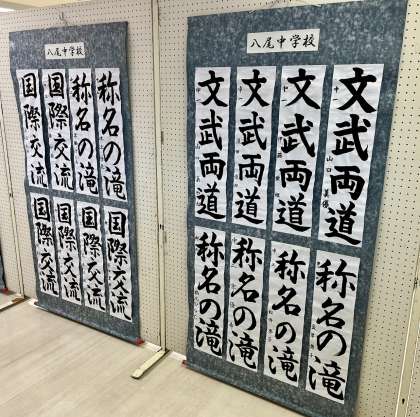 八尾中学校
称名の滝
称名の滝
国際交流
国際交流
国際交流
国際交流
国際交流
国際交流
八尾中学校
文武両道
山口
文武両道
文武両道
文武両道
称名の滝
称名の滝
称名の滝
称名の滝